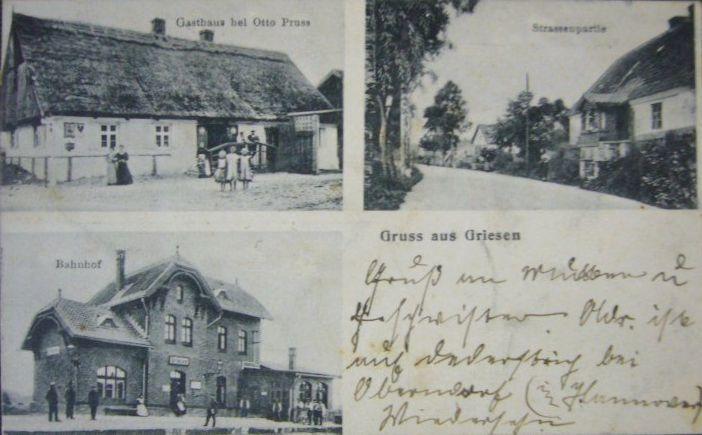 Gasthaus bei Otto Pruss
Strassenpartie
Bahnhof
Gruss aus Griesen
Gruß an Mutter u
Geschwister Adr. ist
auf bei
Oberndorf (in Hannover)
Wiedersehn